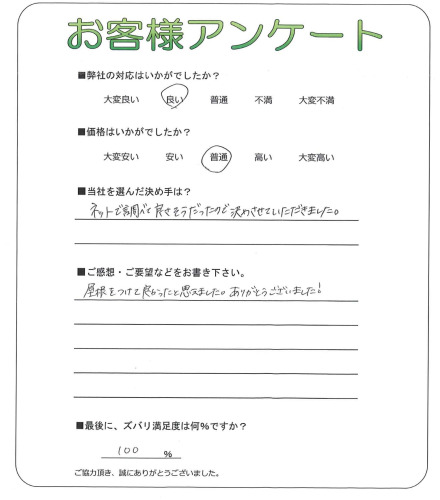 お客様アンケート
■弊社の対応はいかがでしたか？
大変良い 良い 普通 不満 大変不満
■価格はいかがでしたか？
大変安い 安い 普通 高い 大変高い
■当社を選んだ決め手は？
ネットで調べて良さそうだったので決めさせていただきました。
■ご感想・ご要望などをお書き下さい。
屋根をつけて良かったと思えました。ありがとうございました!
■最後に、ズバリ満足度は何%ですか？
100 %
ご協力頂き、誠にありがとうございました。